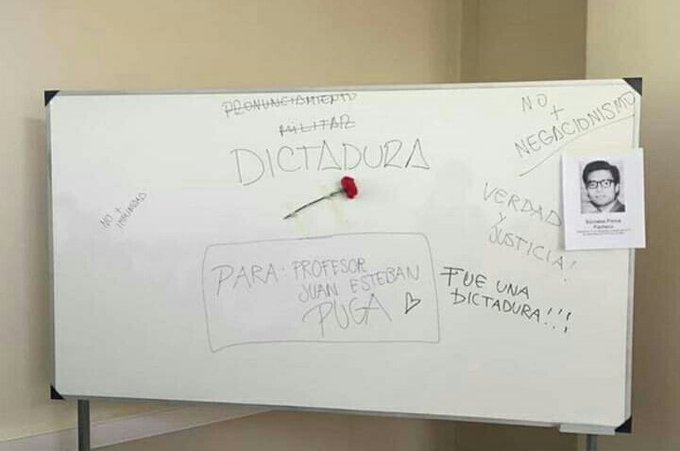 PRONUNCIAMIENTO
MILITAR
DICTADURA
NO +
IMPUNIDAD
NO
+
NEGACIONISMO
VERDAD
Y
JUSTICIA!
PARA: PROFESOR
JUAN ESTEBAN
PUGA
FUE UNA
DICTADURA!!!
Ponce
Pacheco